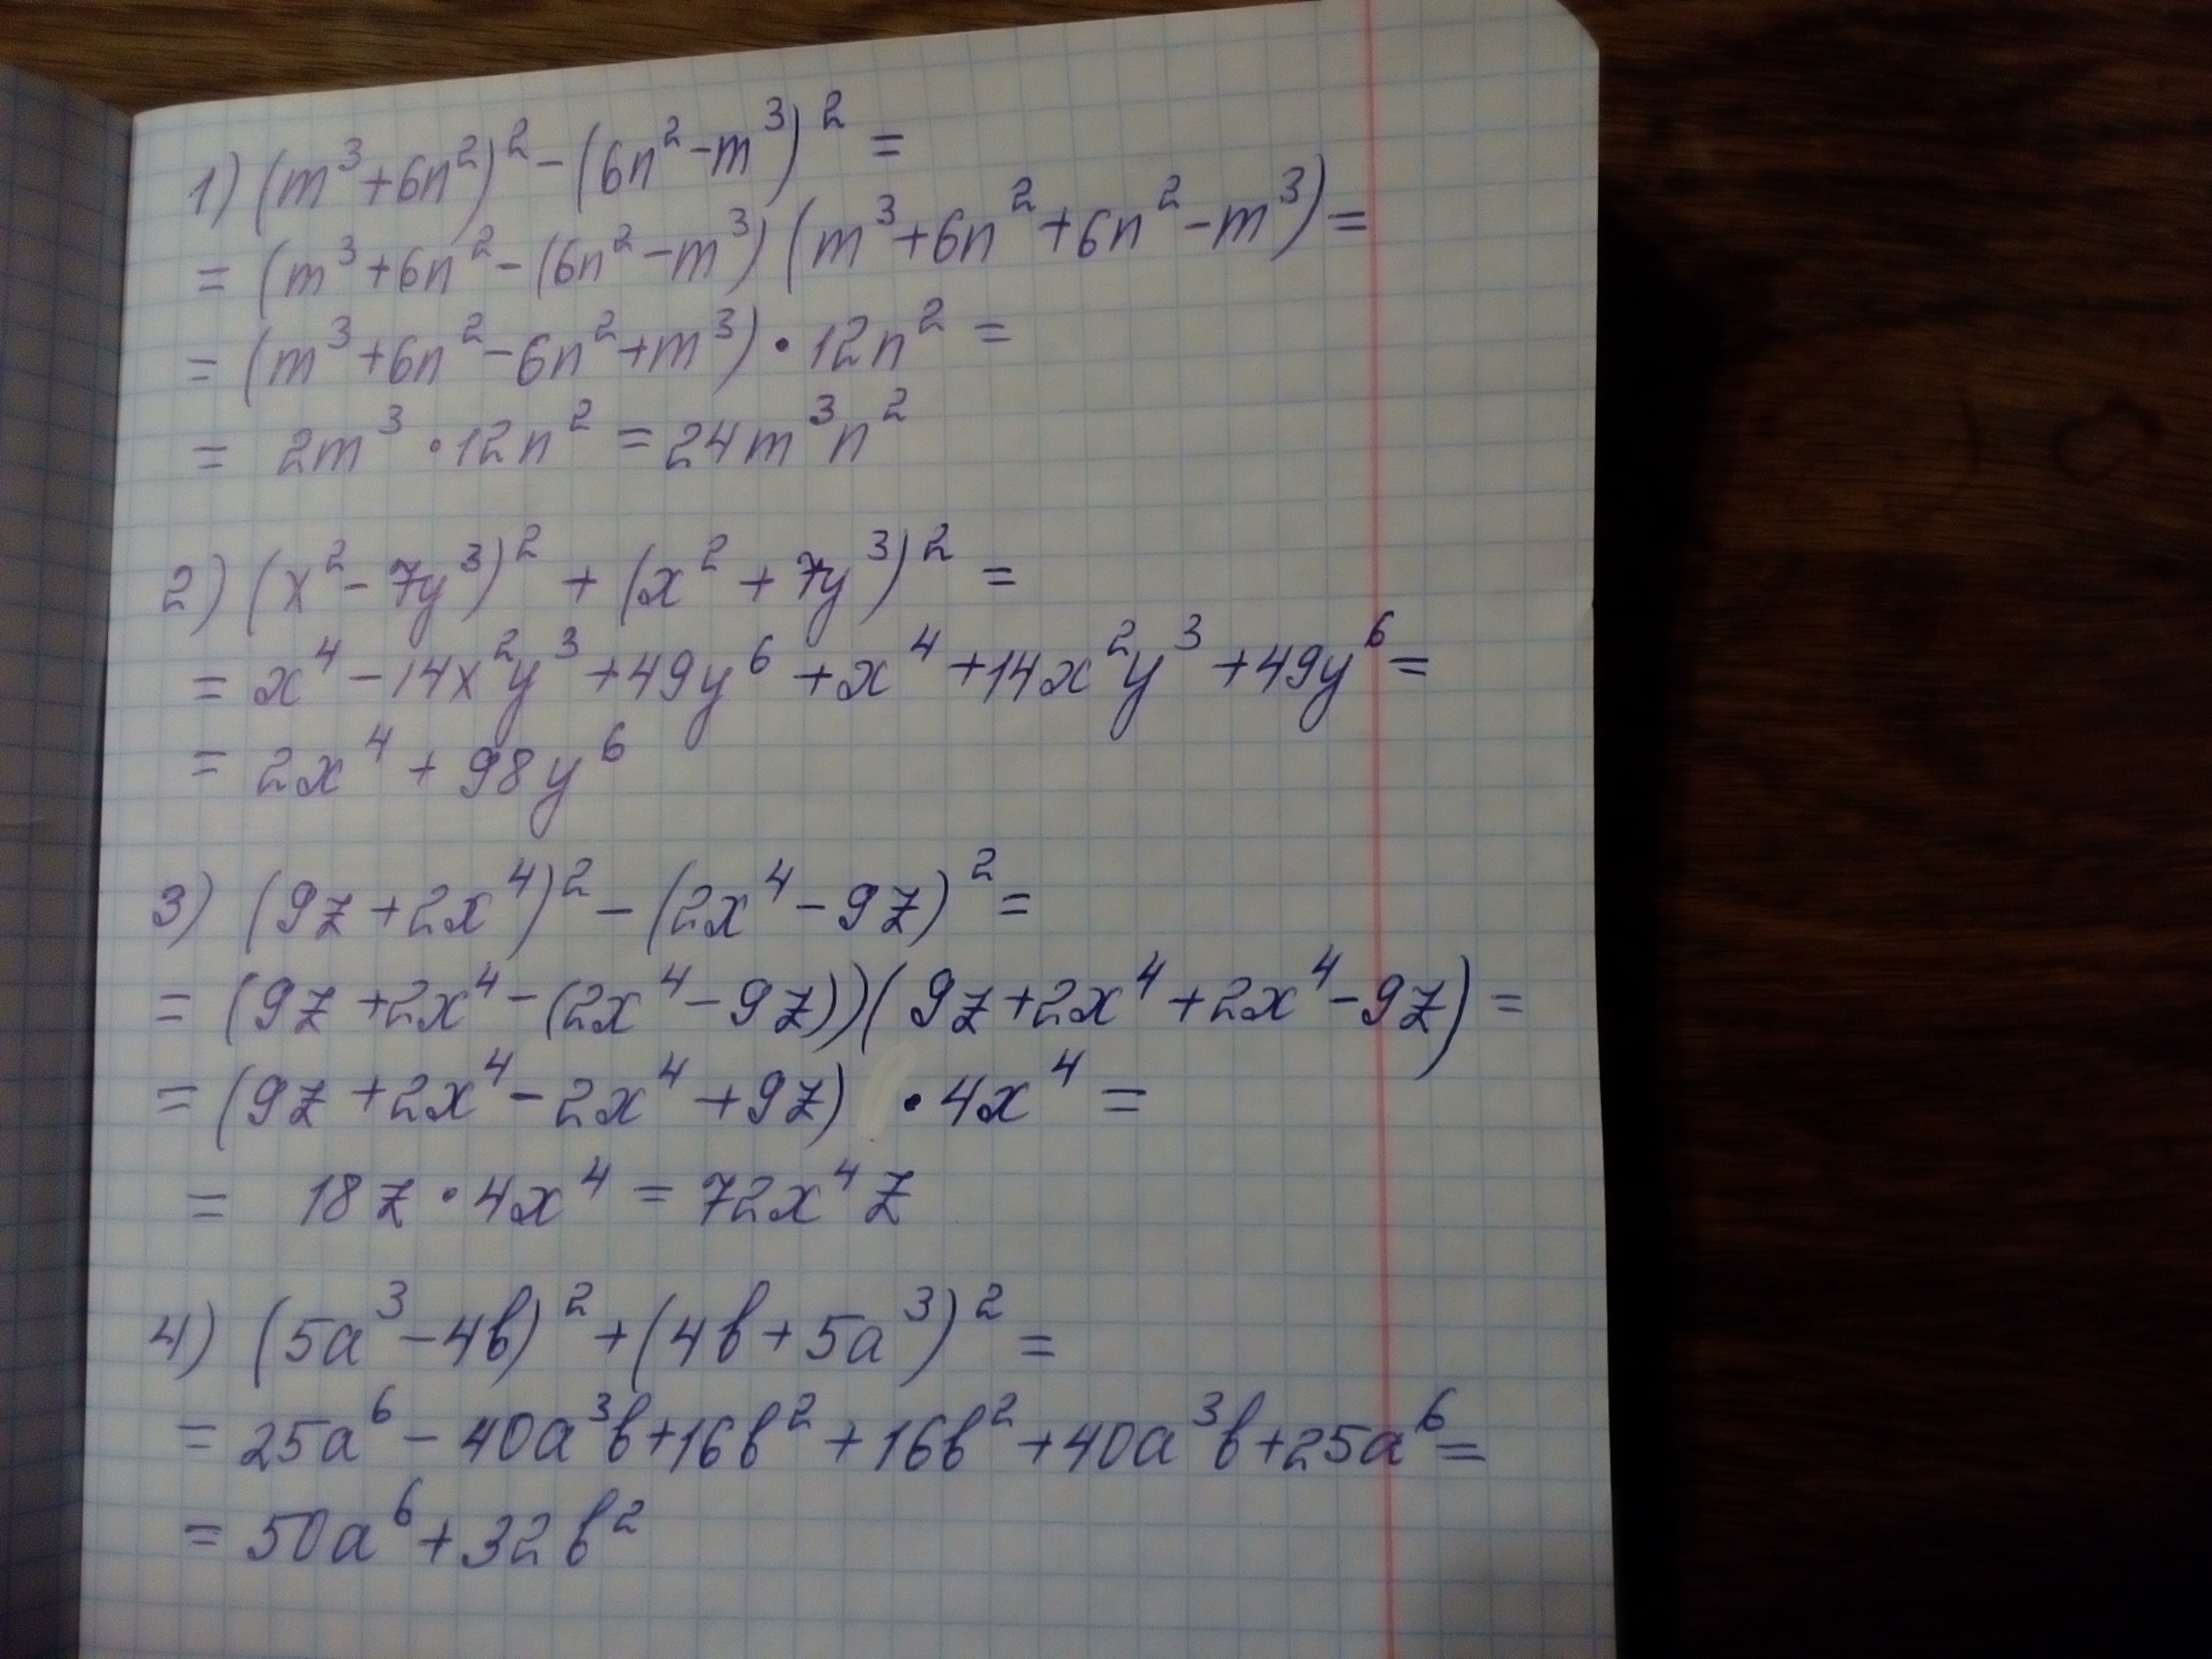 1) (m³+6n²)²-(6n²-m³)²=
= (m³+6n²-(6n²-m³)(m³+6n²+6n²-m³)=
= (m³+6n²-6n²+m³)·12n²=
= 2m³·12n²=24m³n²
2) (x²-7y³)²+(x²+7y³)²=
= x⁴-14x²y³+49y⁶+x⁴+14x²y³+49y⁶=
= 2x⁴+98y⁶
3) (9z+2x⁴)²-(2x⁴-9z)²=
= (9z+2x⁴-(2x⁴-9z))(9z+2x⁴+2x⁴-9z)=
= (9z+2x⁴-2x⁴+9z)·4x⁴=
= 18z·4x⁴=72x⁴z
4) (5a³-4b)²+(4b+5a³)²=
= 25a⁶-40a³b+16b²+16b²+40a³b+25a⁶=
= 50a⁶+32b²